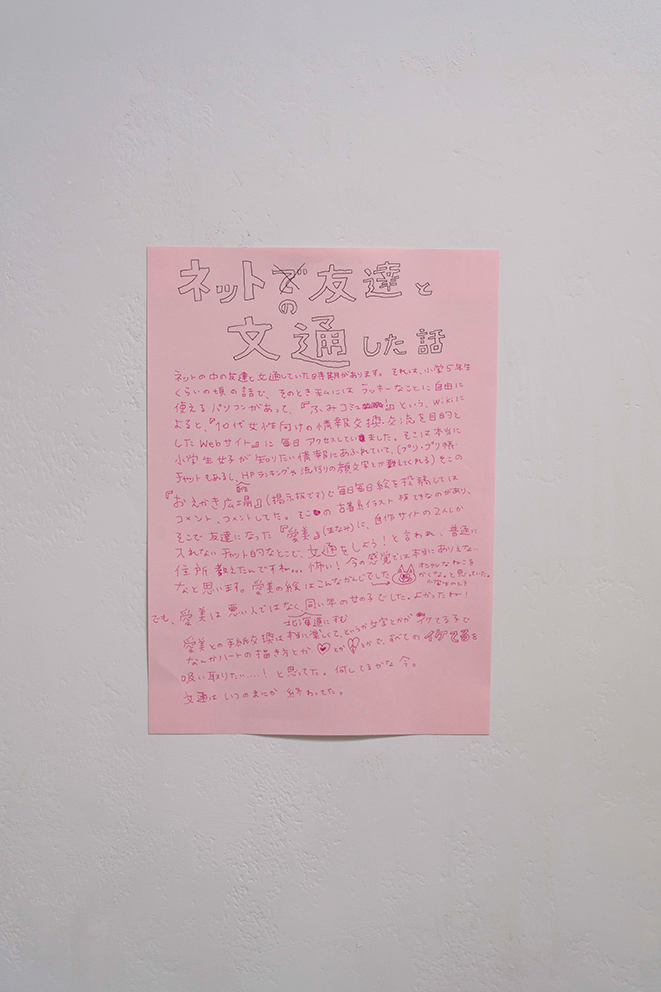 ネットの友達と
文通した話
ネットの中の友達と文通していた時期があります。それは、小学5年生
くらいの頃の話で、そのとき私にはラッキーなことに自由に
使えるパソコンがあって、『ふみコミュ!』という、wikiに
よると、『10代女性向けの情報交換・交流を目的と
したWebサイト』に毎日アクセスしていました。そこは本当に
小学生女子が知りたい情報にあふれていて、(プリ・プリ帳・
チャットもあるし、HPランキングや流行りの顔文字とか教えてくれる)そこの
『おえかき広場』(掲示板です)で毎日毎日絵を投稿しては
コメント、コメントしてた。そこの古着系イラスト板てきなのがあり、
そこで友達になった『愛美』(まなみ)に、自作サイトの2人しか
入れないチャット的なとこで、文通をしよう!と言われ、普通に
住所教えたんですね…怖い!今の感覚では本当にありえない
なと思います。愛美の絵はこんなかんじでした
オシャレなねこを
かくな。と思っていた。
小学生のとき
でも、愛美は悪い人ではなく、同い年の女の子でした。よかったね!
北海道にすむ
愛美との手紙交換は本当に楽しくて、というか文字とかがイケてる子で
なんかハートの描き方とか とか とかで、すべてのイケてるを
吸い取りたい……!と思ってた。何してるかな今。
文通はいつのまにか終わってた。